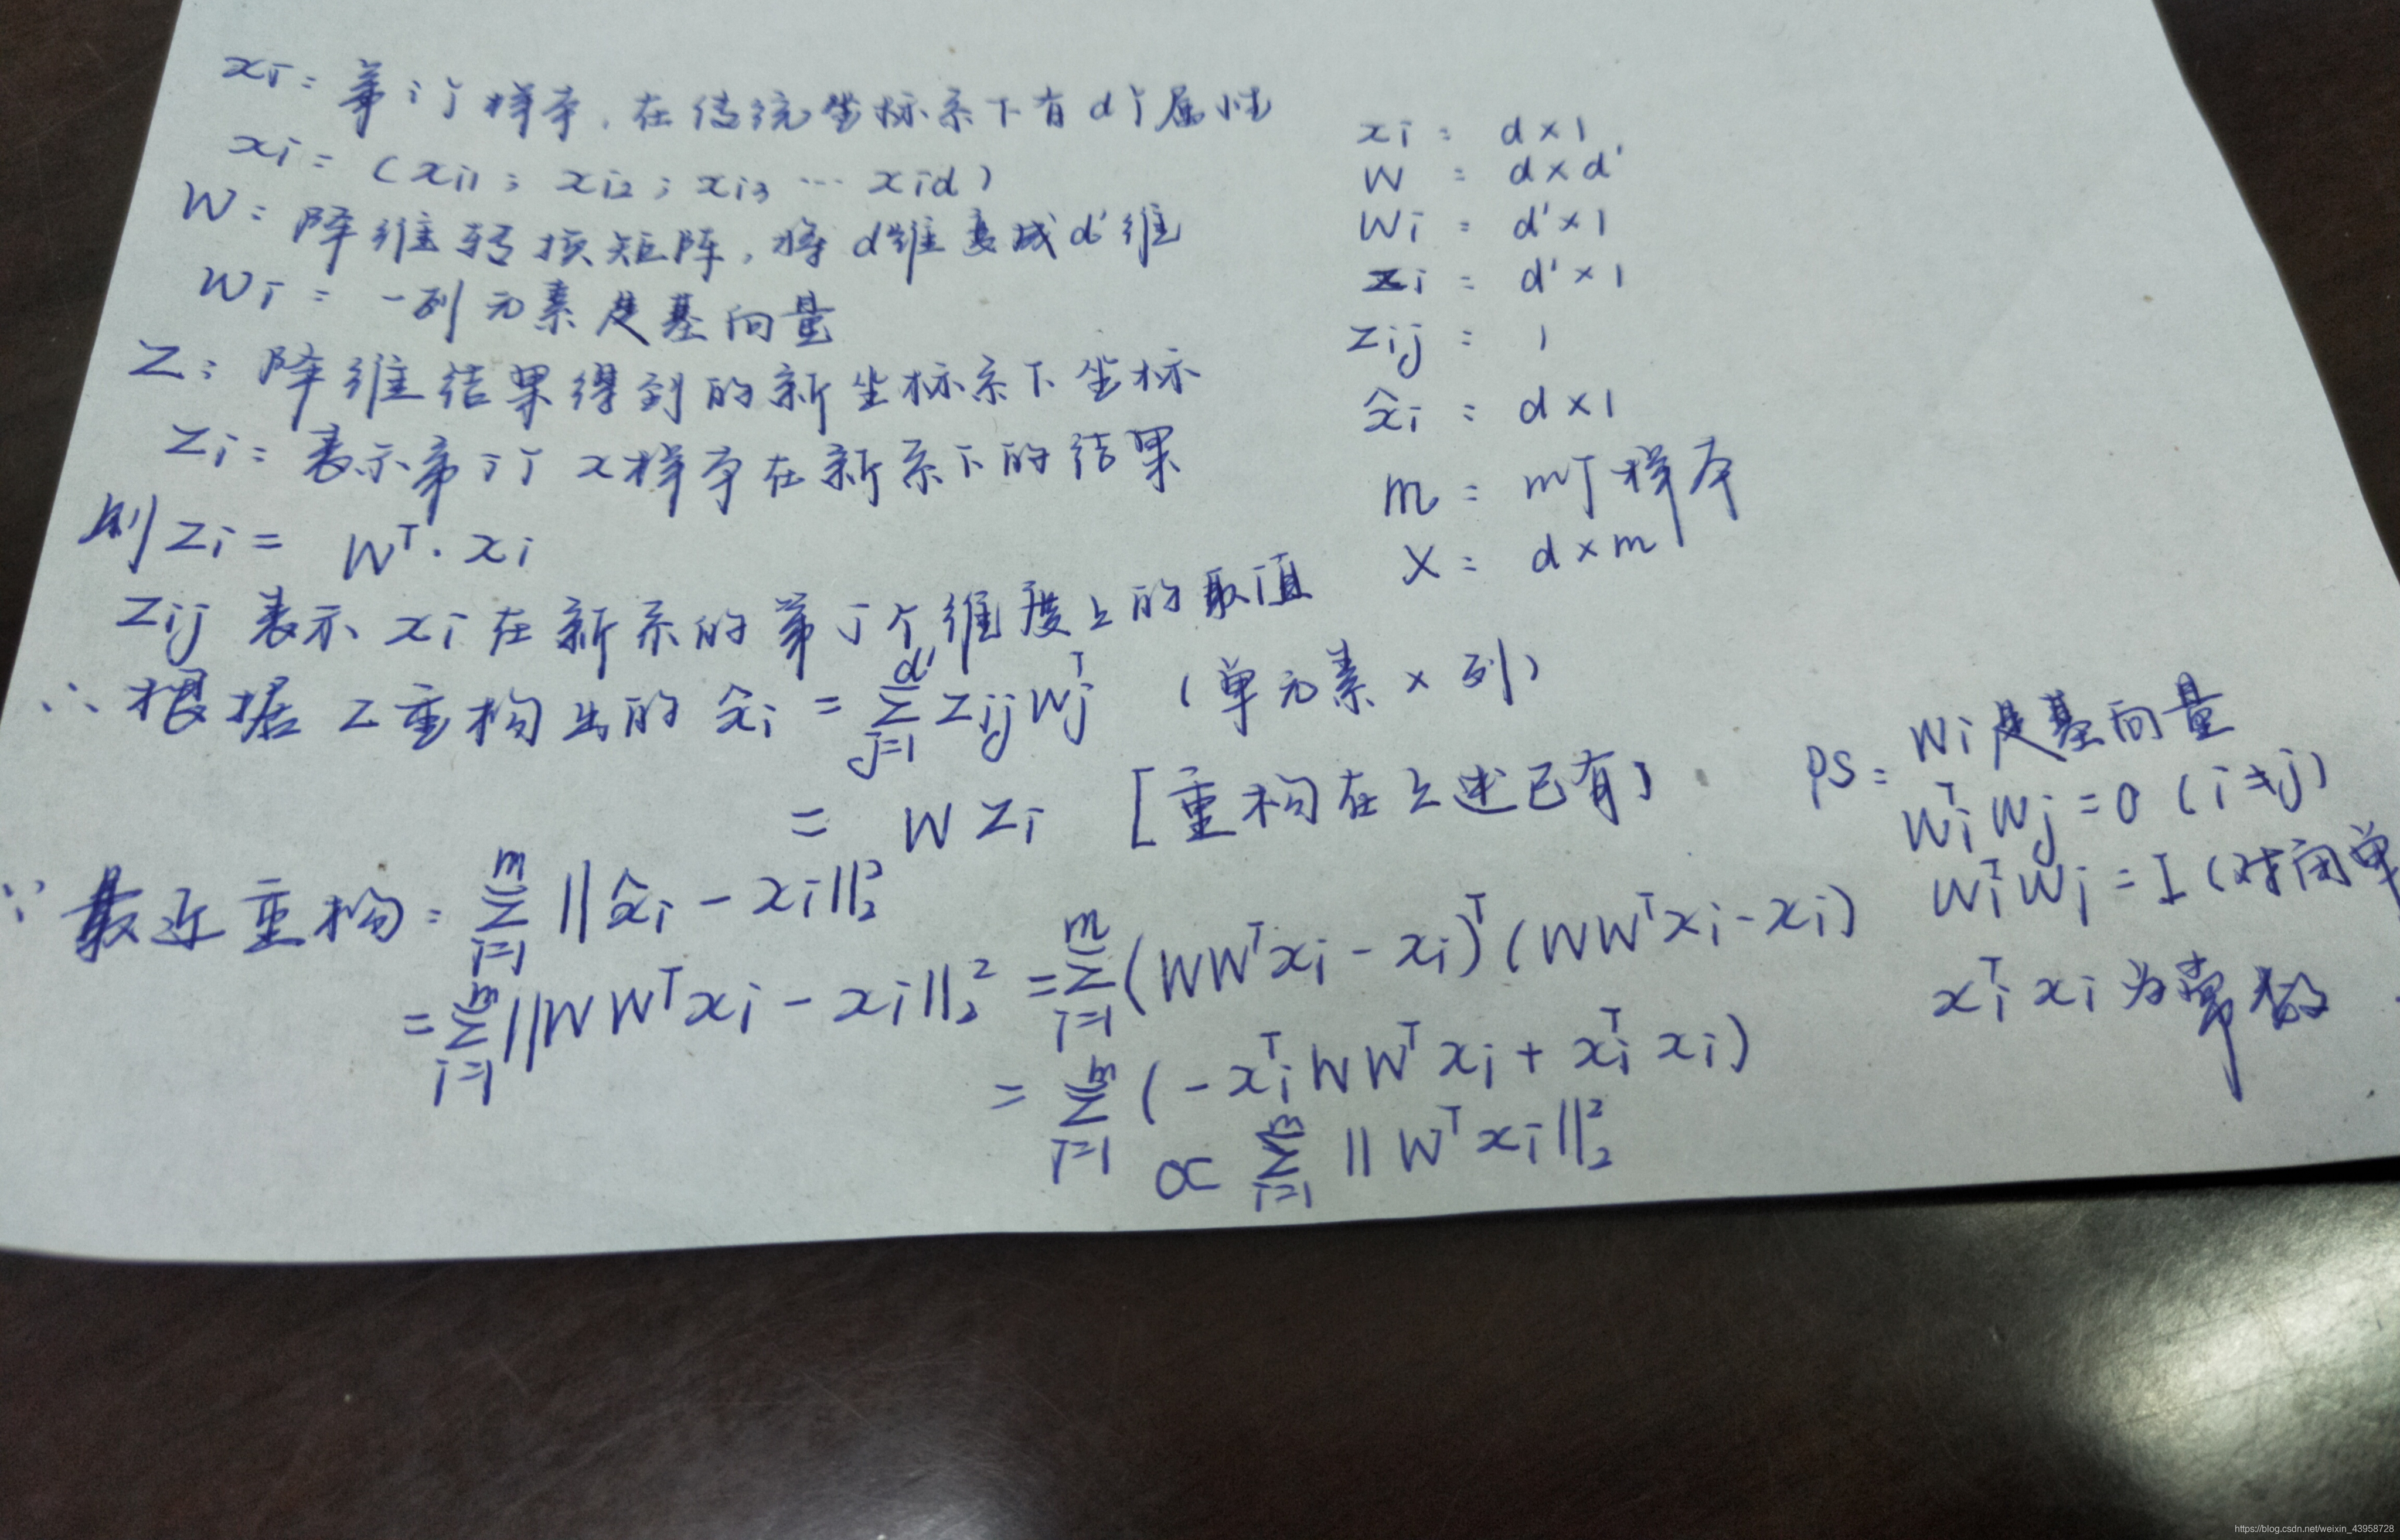 xi: 第i个样本,在传统坐标系下有d个属性
xi = (xi1; xi2; xi3 … xid)
W: 降维转换矩阵,将d维变成d'维
Wi: 一列元素是基向量
Z: 降维结果得到的新坐标系下坐标
Zi: 表示第i个x样本在新系下的结果
则Zi = W^T · xi
Zij 表示 xi 在新系的第j个维度上的取值
∴ 根据Z重构出的 x̂i = Σ_{j=1}^{d'} Zij Wj^T (单元素 × 列)
= W Zi [重构在上述已有]
∵ 最近重构: Σ_{i=1}^{m} ||x̂i − xi||₂²
= Σ_{i=1}^{m} ||WW^T xi − xi||₂² = Σ_{i=1}^{m} (WW^T xi − xi)^T (WW^T xi − xi)
= Σ_{i=1}^{m} (−xi^T WW^T xi + xi^T xi)
∝ Σ_{i=1}^{m} ||W^T xi||₂²
xi: d×1
W: d×d'
Wi: d'×1
Zi: d'×1
Zij: 1
x̂i: d×1
m: m个样本
X: d×m
PS: Wi是基向量
Wi^T Wj = 0 (i≠j)
Wi^T Wj = I (对角单
xi^T xi 为常数
https://blog.csdn.net/weixin_43958728